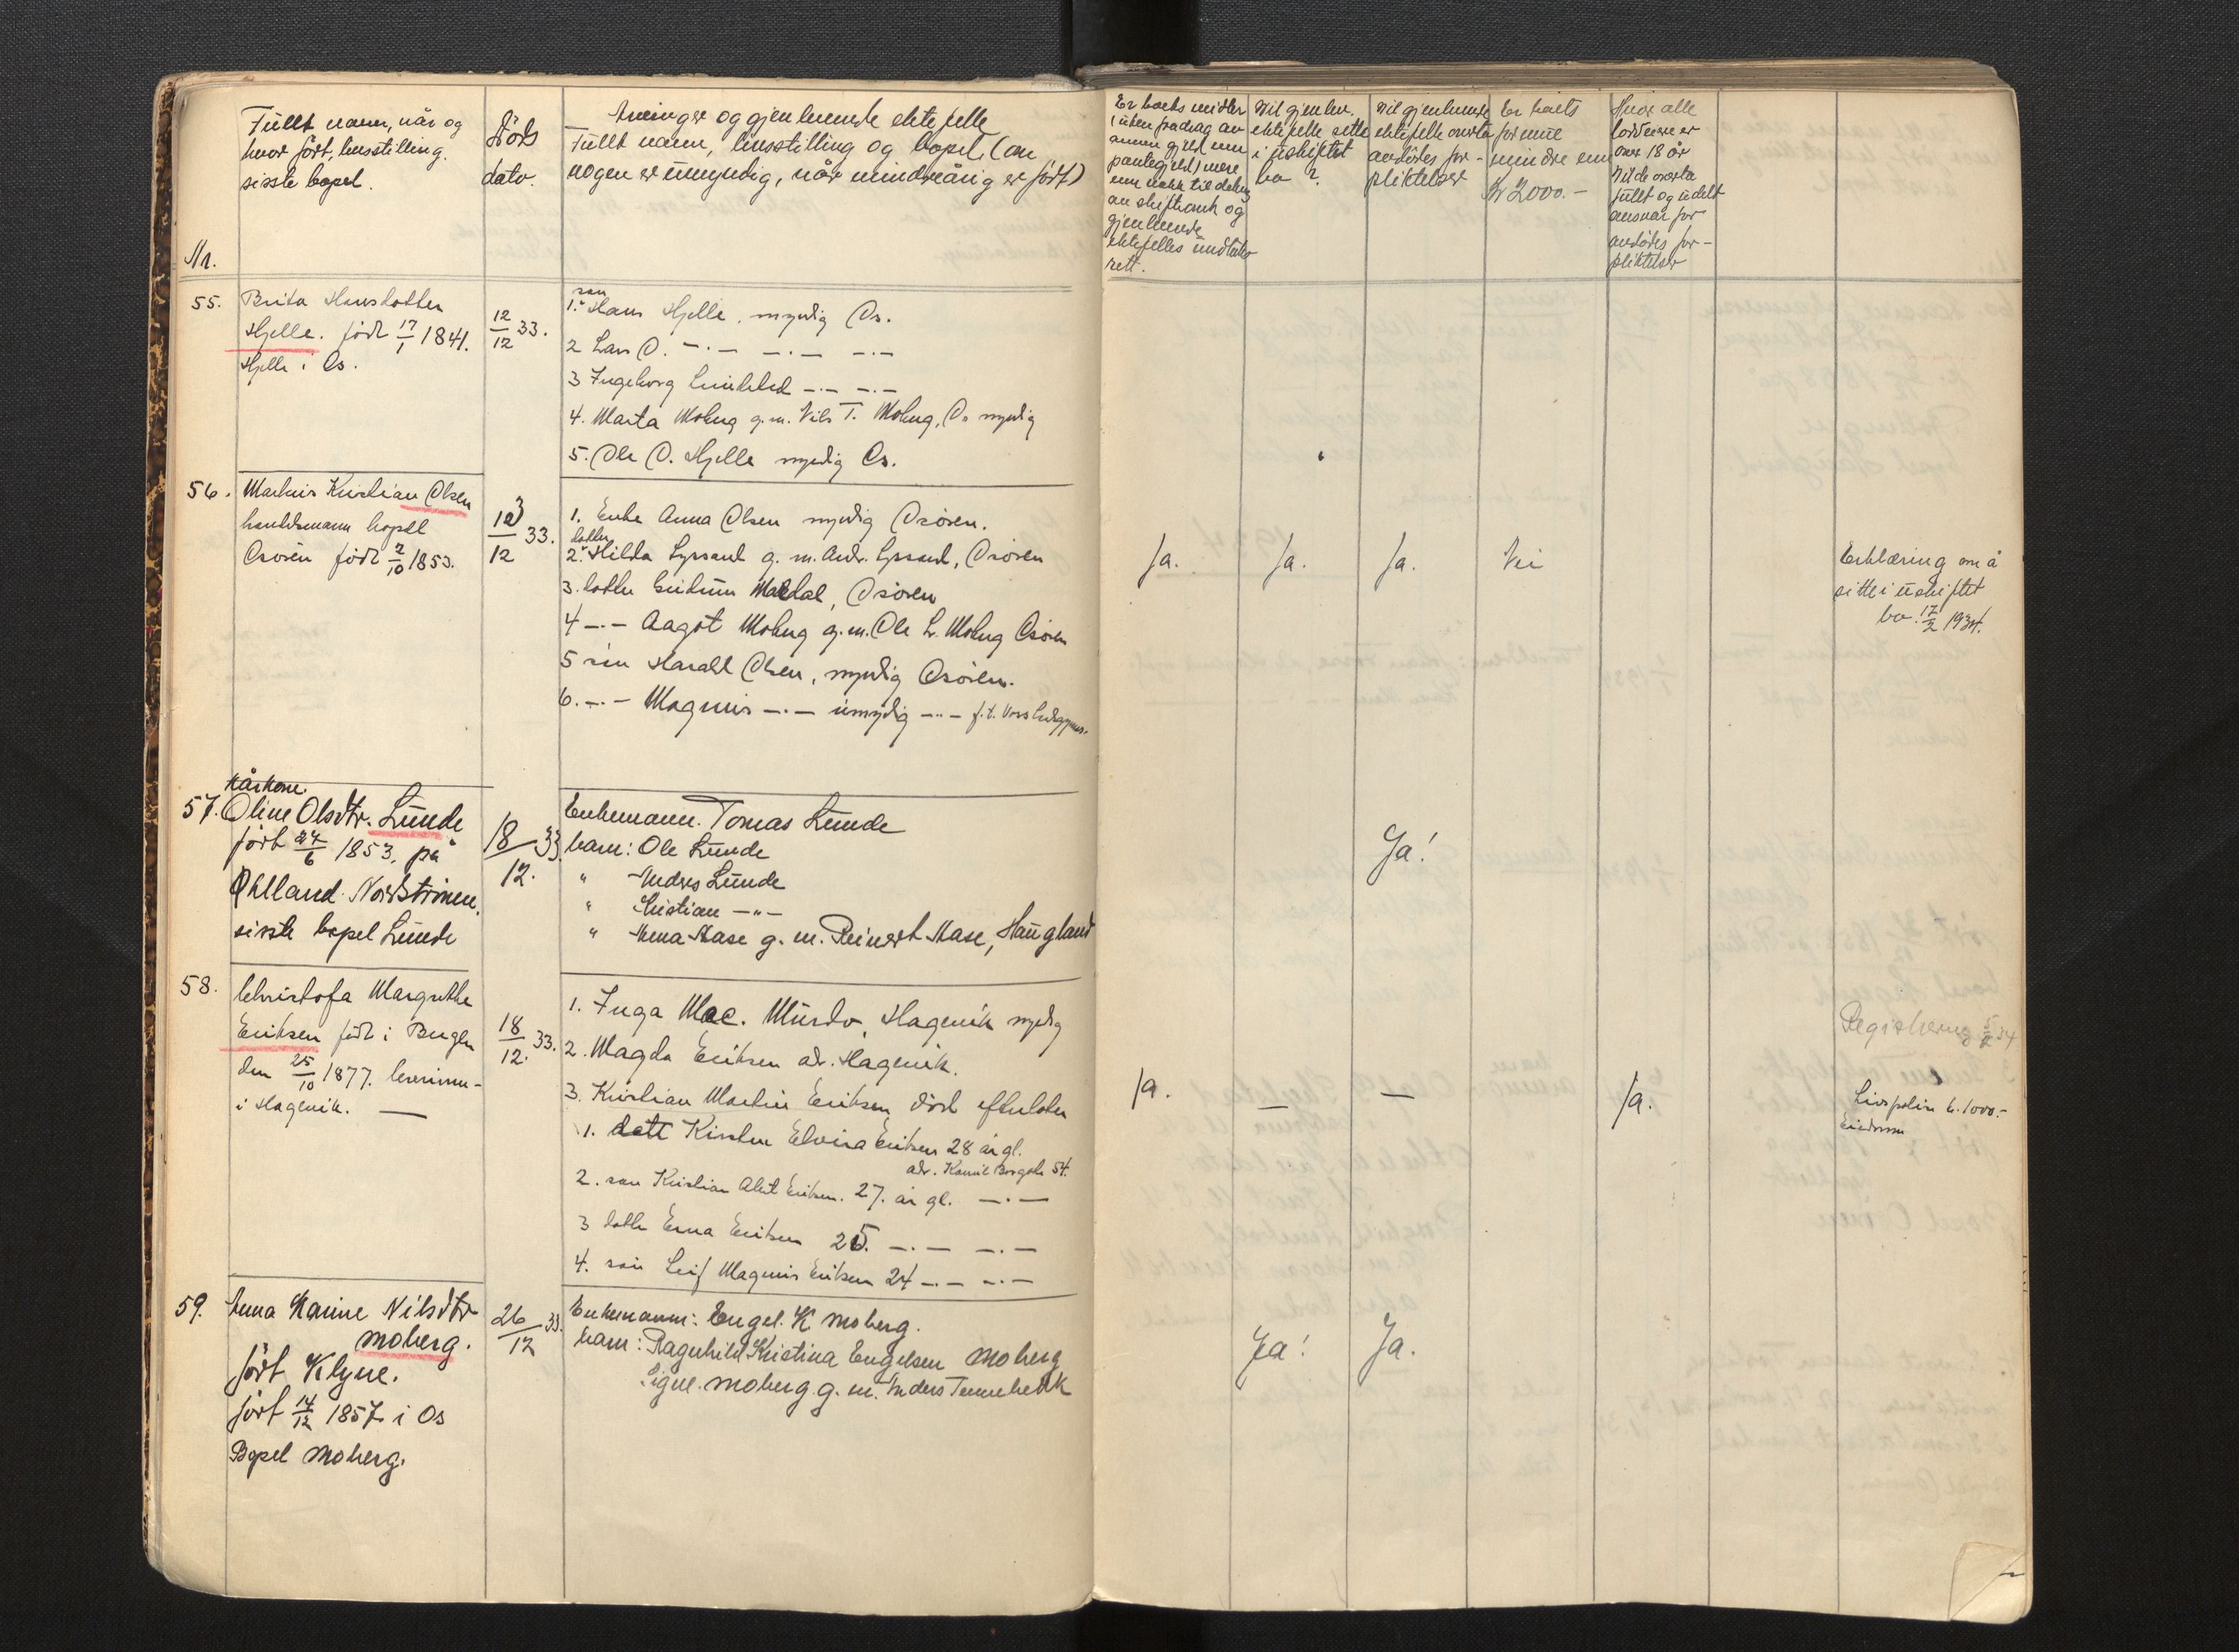 Fullt navn, når og
hvor født, livsstilling.
siste bopel.
Nr.
Døds
dato.
Arvinger og gjenlevende ektefelle
Fullt navn, livsstilling og bopel, (om
nogen er umyndig, når mindreårig er født)
Er boets midler
(uten fradrag av
annen gjeld enn
pantegjeld) mere
enn nokk til dekn.
av skifteomk og
gjenlevende
ektefelles undtaks
rett.
Vil gjenlev.
ektefelle sitte
i uskiftet
bo?
Vil gjenlevende
ektefelle overta
avdødes for-
pliktelser
Er boets
formue
mindre enn
kr 2000.-
Hvor alle
loddeiere er
over 18 år
Vil de overta
fullt og udelt
ansvar for
avdødes for-
pliktelser
55. Brita Hansdotter
Hjelle. født 17/1 1841.
Hjelle i Os.
12/12 33.
søn
1. Hans Hjelle, myndig Os.
2 Lars O. -.- -.- -.-
3 Ingeborg -.- -.-
4. Marta Moberg g.m. Nils T. Moberg, Os myndig
5. Ole O. Hjelle myndig Os.
56. Markus Kristian Olsen
handelsmann bopel
Osøren født 2/10 1853.
13/12 33.
1. Enke Anna Olsen myndig Osøren.
datter
2. Hilda Lyssand g. m. Andr. Lyssand, Osøren
3. datter Gudrun Mældal, Osøren
4 -.- Aagot Moberg g.m. Ole L. Moberg Osøren
5 søn Harald Olsen, myndig Osøren.
6. -.- Magnus -.- umyndig -.- f.t. Voss
Ja. Ja. Ja. Nei
Erklæring om å
sitte i uskiftet
bo. 17/2 1934.
Kårkone.
57. Oline Olsdtr. Lunde
født 24/6 1853, på
Øhlland Nordstrønen.
siste bopel Lunde
18/12. 33.
Enkemann. Tomas Lunde
barn: Ole Lunde
" Andres Lunde
" Kristian -"-
" Anna Aase g. m. Reinert Aase, Haugland
Ja!
58. Christofa Margrethe
Eriksen født i Bergen
den 25/10 1877.
i Hagevik. —
18/12. 33.
1. Inga Mac. Murdo, Hagevik myndig
2. Magda Eriksen adr. Hagevik.
3. Kristian Martin Eriksen død efterlater
1. datt Kirsten Elvira Eriksen 28 år gl.
adr. 54.
2. søn Kristian Eriksen. 27. år gl. -.-
3 datter Erna Eriksen 25. -.- -.-
4. søn Leif Magnus Eriksen 24 -.- -.-
Ja. — — Ja.
Registrering 34
Livspolise kr. 1000.-
59. Anna Karine Nilsdtr
Moberg.
født Klyve.
født 14/12 1857 i Os
Bopel Moberg.
26/12 33.
Enkemann: Engel. K Moberg.
barn: Ragnhild Kristina Engelsen Moberg
Signe. Moberg g. m. Anders Tennebekk
Ja! Ja.